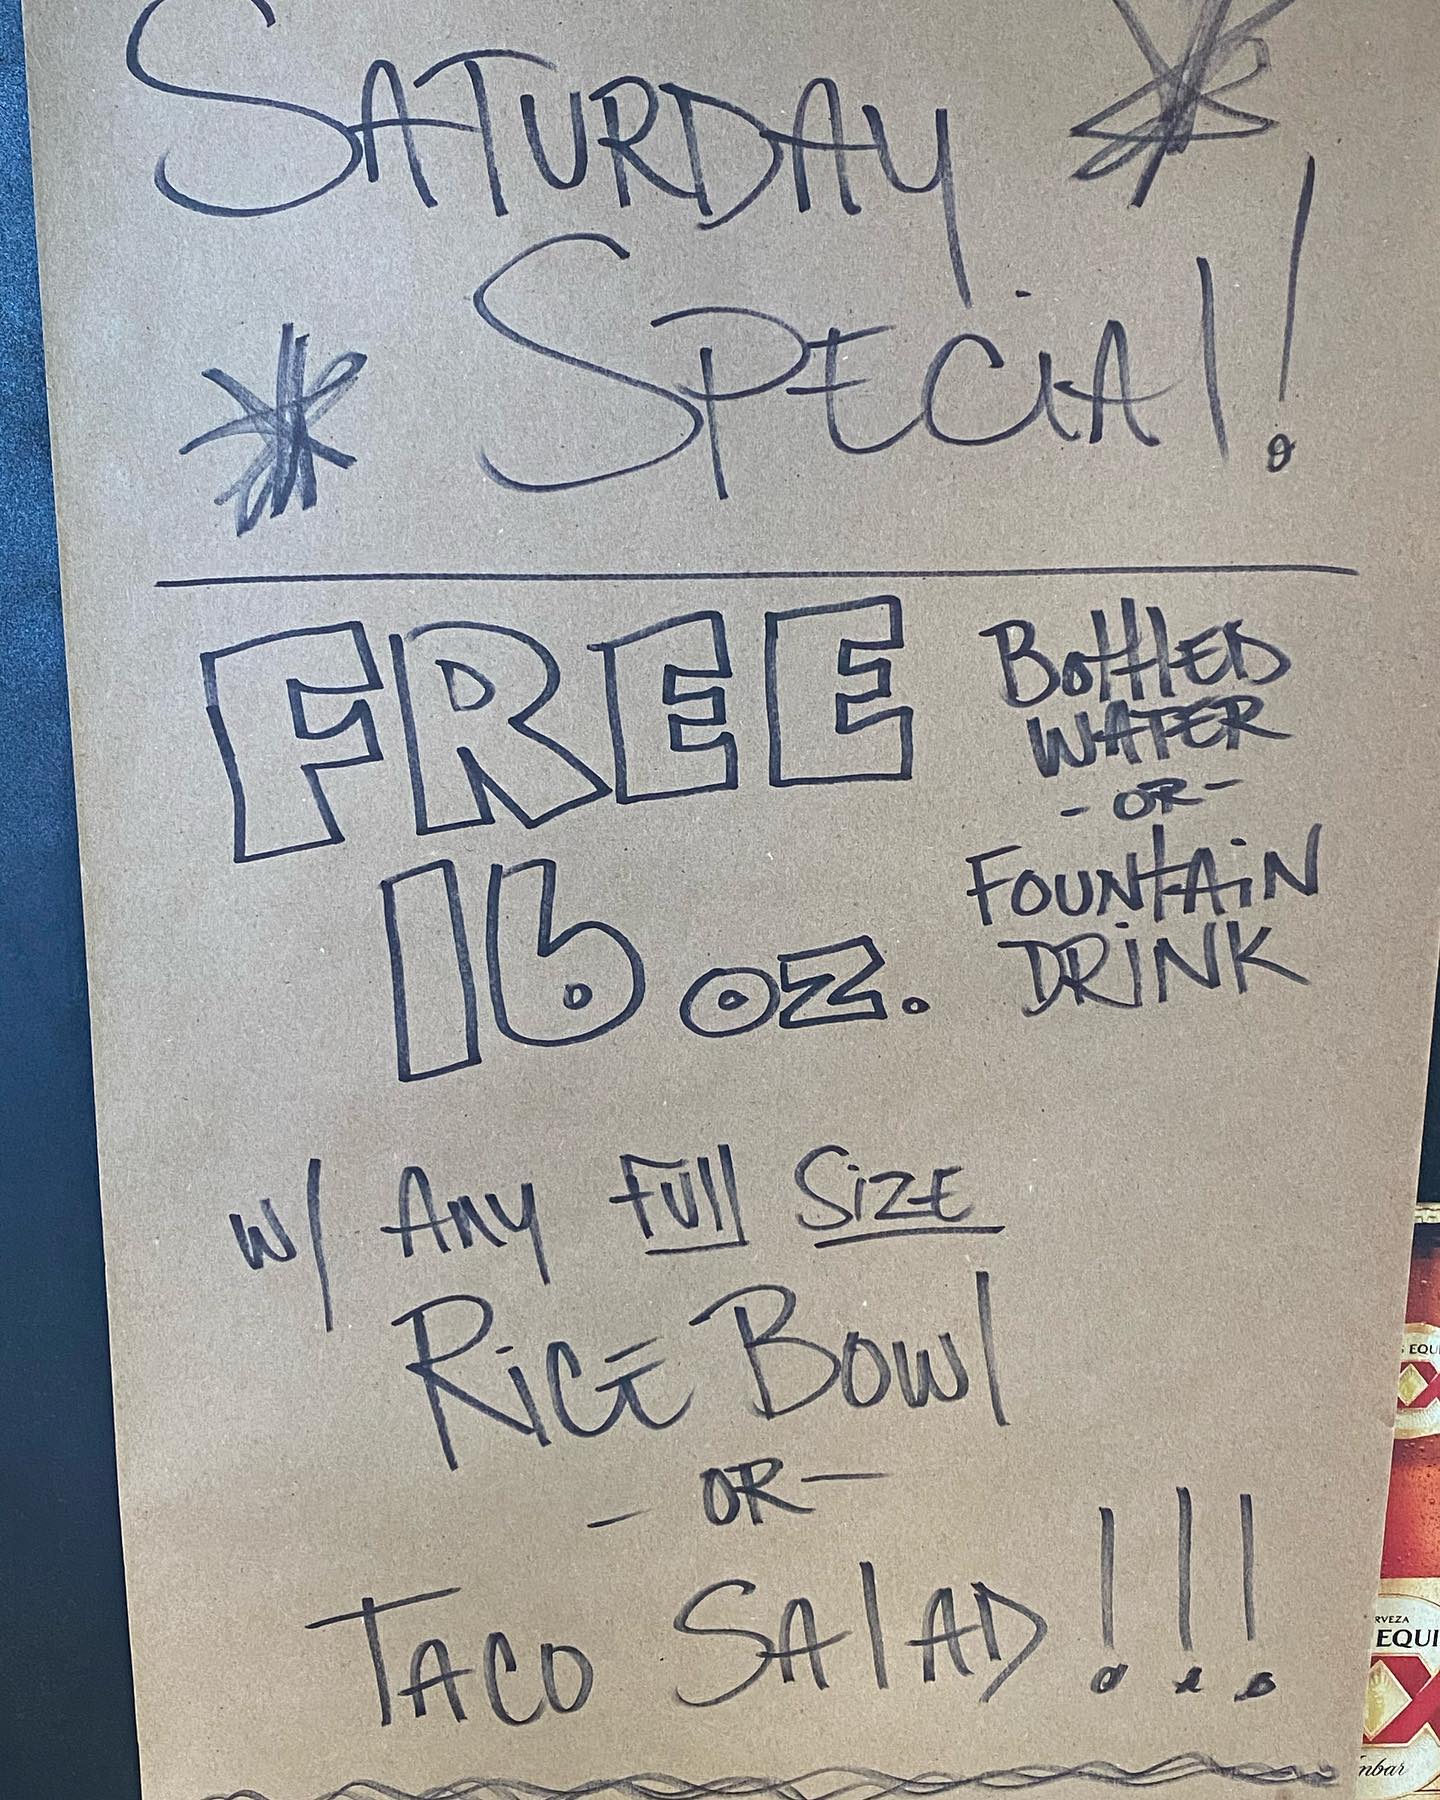 SATURDAY
SPECiAl!
FREE
16 oz.
BottlED
WATER
- OR -
FOUNtAiN
DRiNK
w/ Any Full SiZE
RiCE BOWl
- OR -
TACO SAlAD!!!
S EQU
X
RVEZA
EQUI
X
mbar